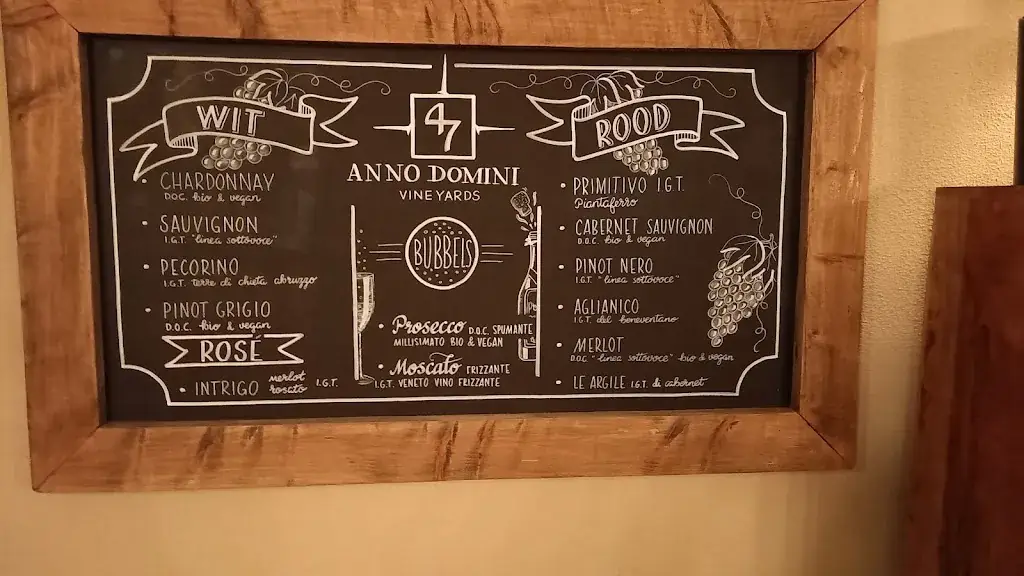 WIT
CHARDONNAY
D.O.C. bio & vegan
SAUVIGNON
I.G.T. "linea sottovoce"
PECORINO
I.G.T. terre di chieta abruzzo
PINOT GRIGIO
D.O.C. bio & vegan
ROSÉ
INTRIGO merlot rosato I.G.T.
47
ANNO DOMINI
VINEYARDS
BUBBELS
Prosecco D.O.C. SPUMANTE
MILLISIMATO BIO & VEGAN
Moscato FRIZZANTE
I.G.T. VENETO VINO FRIZZANTE
ROOD
PRIMITIVO I.G.T.
Piantaferro
CABERNET SAUVIGNON
D.O.C. bio & vegan
PINOT NERO
I.G.T. "linea sottovoce"
AGLIANICO
I.G.T. del beneventano
MERLOT
D.O.C. "linea sottovoce" bio & vegan
LE ARGILE I.G.T. di cabernet